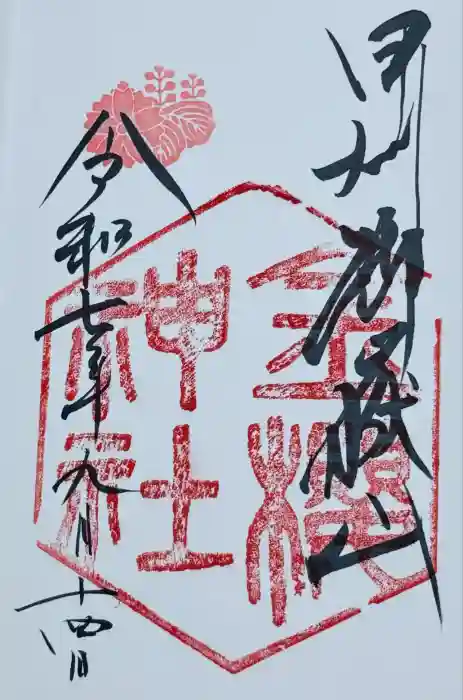 甲州御嶽山
金櫻
神社
令和七年九月十四日